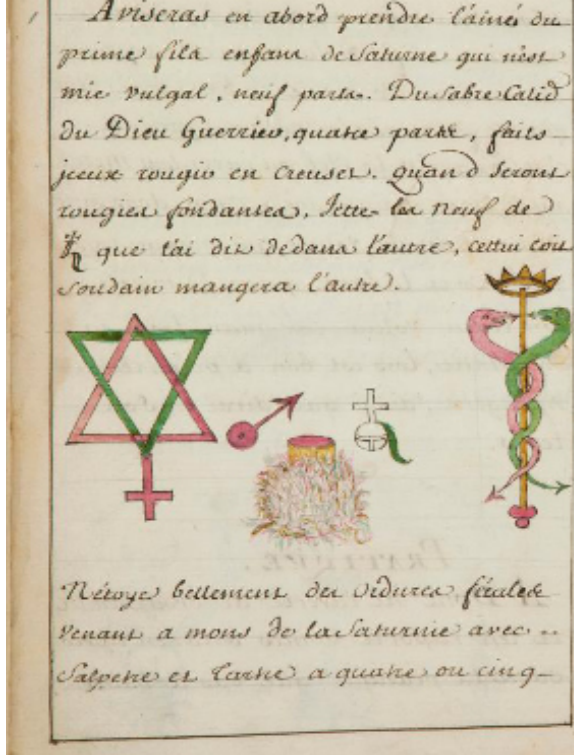 Aviseras en abord prendre l'ainé du
prime fils enfant de Saturne qui n'est
mie vulgal, neuf parts. Du Sabre Calid
du Dieu Guerrier, quatre parts, faits
jceux rougir en Creuset. quand seront
rougies fondantes, Jette les neuf de
♄ que t'ai dit dedans l'autre, cettui coit
soudain mangera l'autre.
Nétoye bellement des ordures fécales
venant a mons de la Saturnie avec ..
Salpetre et Tartre a quatre ou cinq-